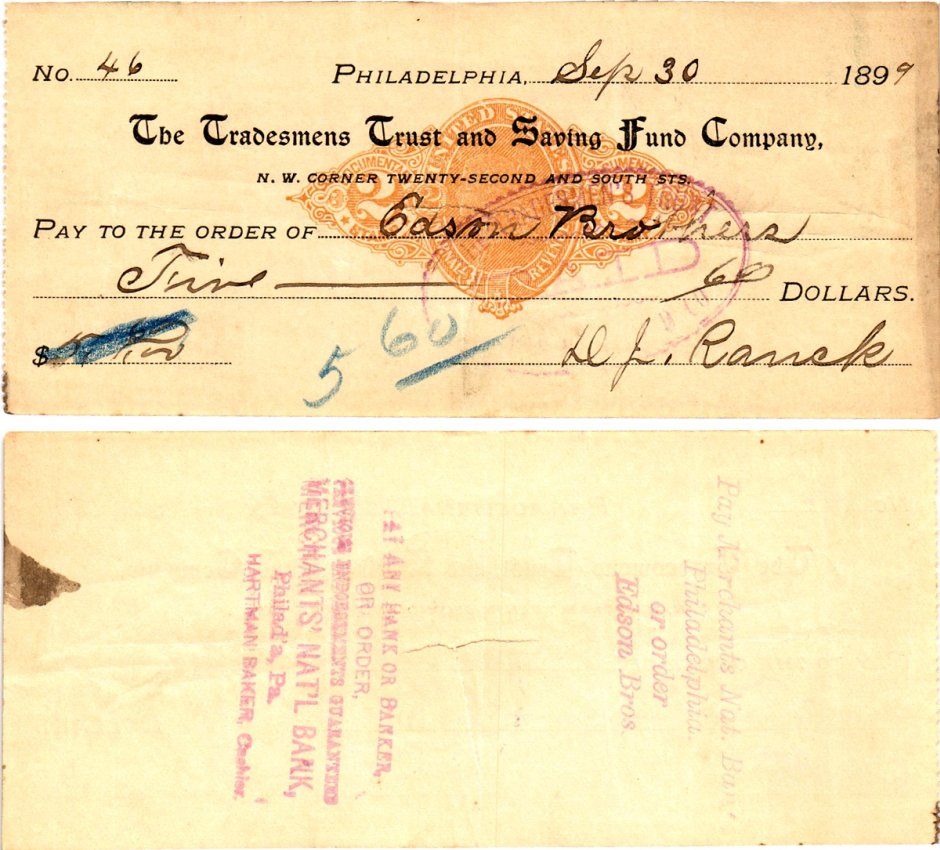 No. 46 Philadelphia, Sep 30 1899
The Tradesmens Trust and Saving Fund Company,
N. W. CORNER TWENTY-SECOND AND SOUTH STS.
UNITED STATES
DOCUMENTARY
2 2
PAY TO THE ORDER OF Edson Brothers
Five 60 DOLLARS.
$ 5 60
D J. Ranck
PAID
Pay Merchants Nat. Bank,
Philadelphia.
or order
Edson Bros.
PAY ANY BANK OR BANKER,
OR ORDER,
PREVIOUS INDORSEMENTS GUARANTEED
MERCHANTS' NAT'L BANK,
Philad'a, Pa.
HARTMAN BAKER, Cashier.